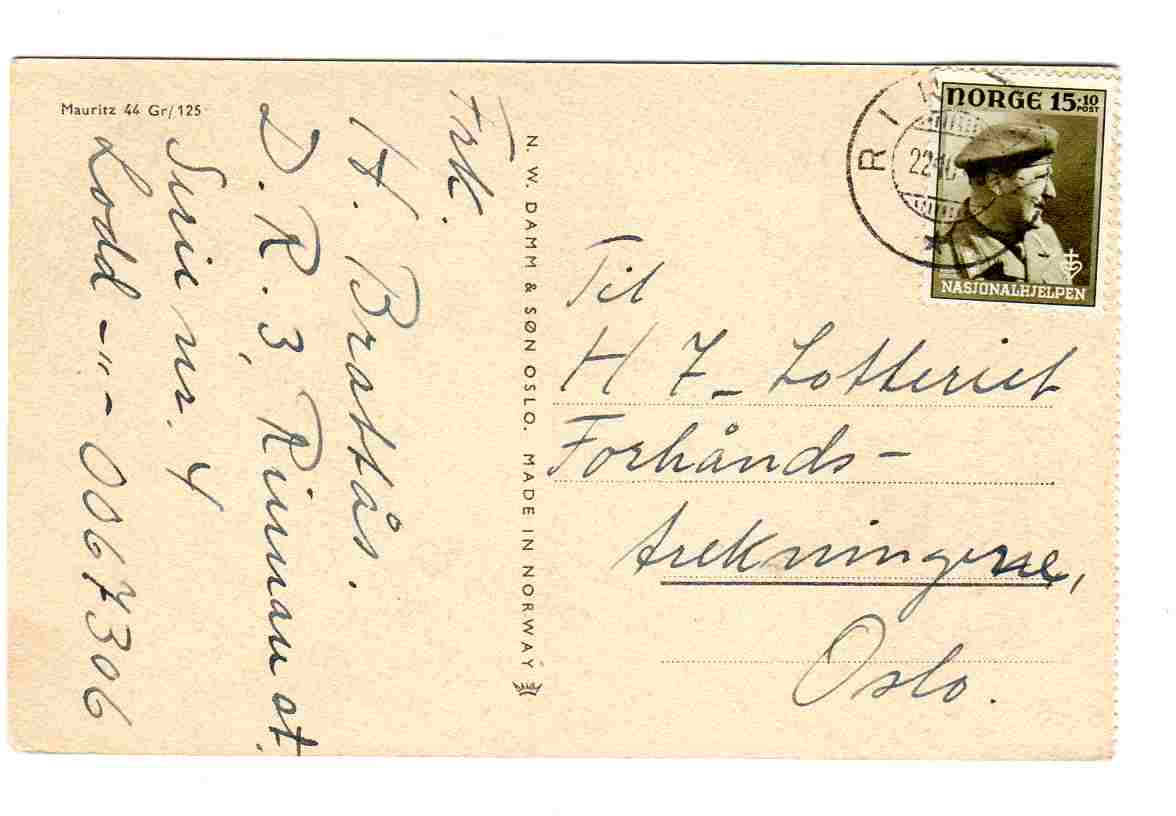 Mauritz 44 Gr/125
Frk.
H. Brattås.
D. R. 3, Rinnan st.
Serie nr. 4
Lodd -"- 0067306
N. W. DAMM & SØN OSLO. MADE IN NORWAY
NORGE 15+10
POST
NASJONALHJELPEN
22
Til
H 7_ Lotteriet
Forhånds-
trekningene,
Oslo.